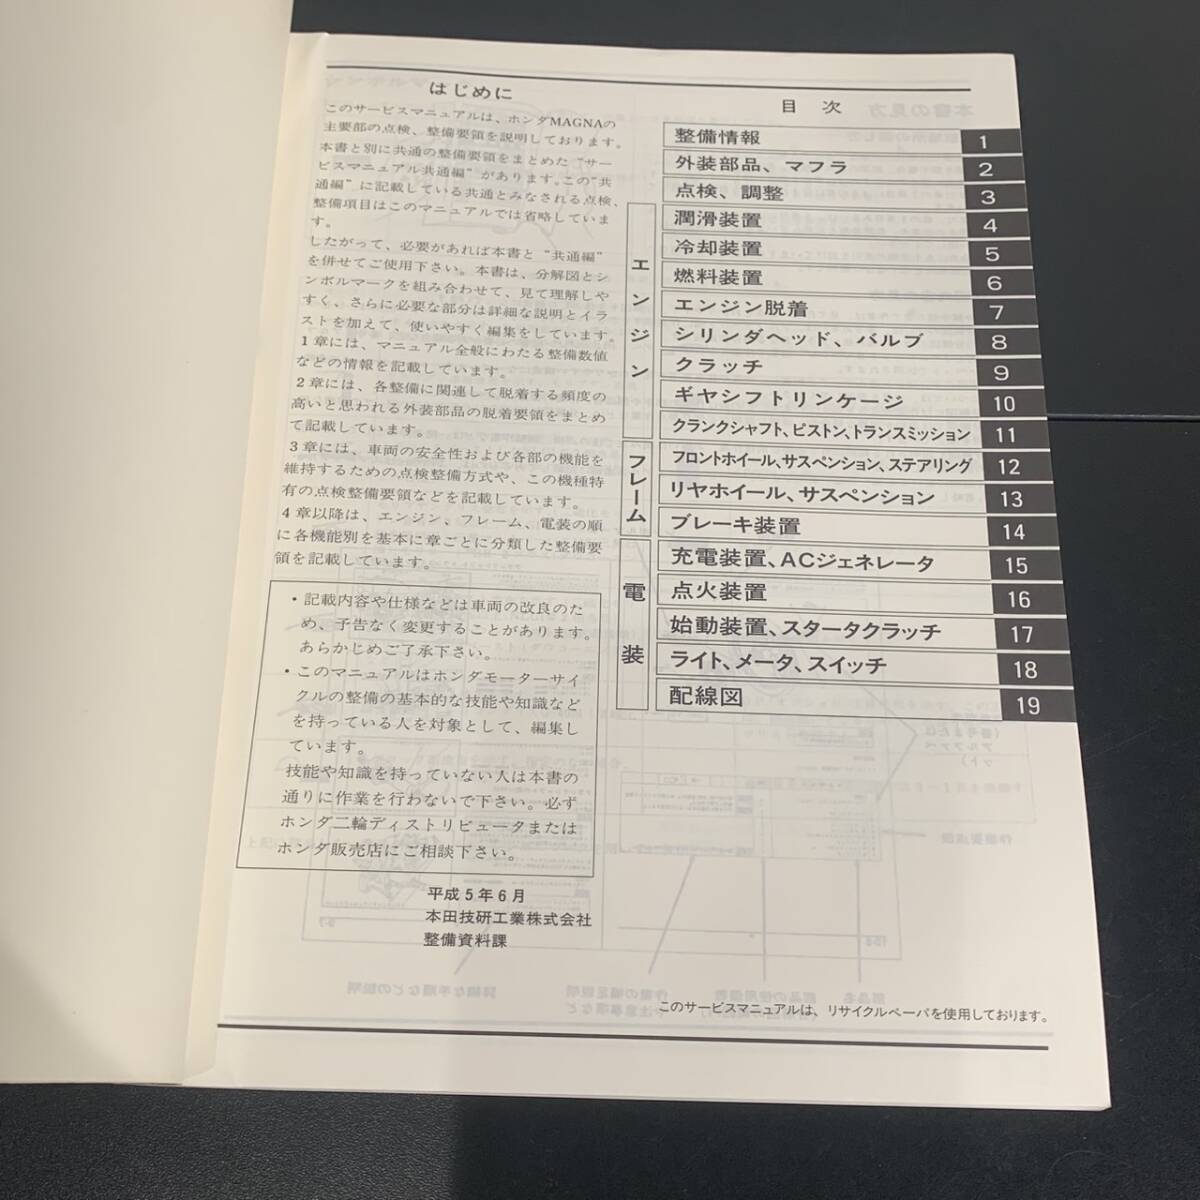 はじめに
このサービスマニュアルは、ホンダMAGNAの
主要部の点検、整備要領を説明しております。
本書と別に共通の整備要領をまとめた“サー
ビスマニュアル共通編”があります。この“共
通編”に記載している共通とみなされる点検、
整備項目はこのマニュアルでは省略していま
す。
したがって、必要があれば本書と“共通編”
を併せてご使用下さい。本書は、分解図とシ
ンボルマークを組み合わせて、見て理解しや
すく、さらに必要な部分は詳細な説明とイラ
ストを加えて、使いやすく編集をしています。
1章には、マニュアル全般にわたる整備数値
などの情報を記載しています。
2章には、各整備に関連して脱着する頻度の
高いと思われる外装部品の脱着要領をまとめ
て記載しています。
3章には、車両の安全性および各部の機能を
維持するための点検整備方式や、この機種特
有の点検整備要領などを記載しています。
4章以降は、エンジン、フレーム、電装の順
に各機能別を基本に章ごとに分類した整備要
領を記載しています。
・記載内容や仕様などは車両の改良のた
め、予告なく変更することがあります。
あらかじめご了承下さい。
・このマニュアルはホンダモーターサイ
クルの整備の基本的な技能や知識など
を持っている人を対象として、編集し
ています。
技能や知識を持っていない人は本書の
通りに作業を行わないで下さい。必ず
ホンダ二輪ディストリビュータまたは
ホンダ販売店にご相談下さい。
平成5年6月
本田技研工業株式会社
整備資料課
目 次
整備情報 1
外装部品、マフラ 2
点検、調整 3
エンジン
潤滑装置 4
冷却装置 5
燃料装置 6
エンジン脱着 7
シリンダヘッド、バルブ 8
クラッチ 9
ギヤシフトリンケージ 10
クランクシャフト、ピストン、トランスミッション 11
フレーム
フロントホイール、サスペンション、ステアリング 12
リヤホイール、サスペンション 13
ブレーキ装置 14
電装
充電装置、ACジェネレータ 15
点火装置 16
始動装置、スタータクラッチ 17
ライト、メータ、スイッチ 18
配線図 19
このサービスマニュアルは、リサイクルペーパを使用しております。